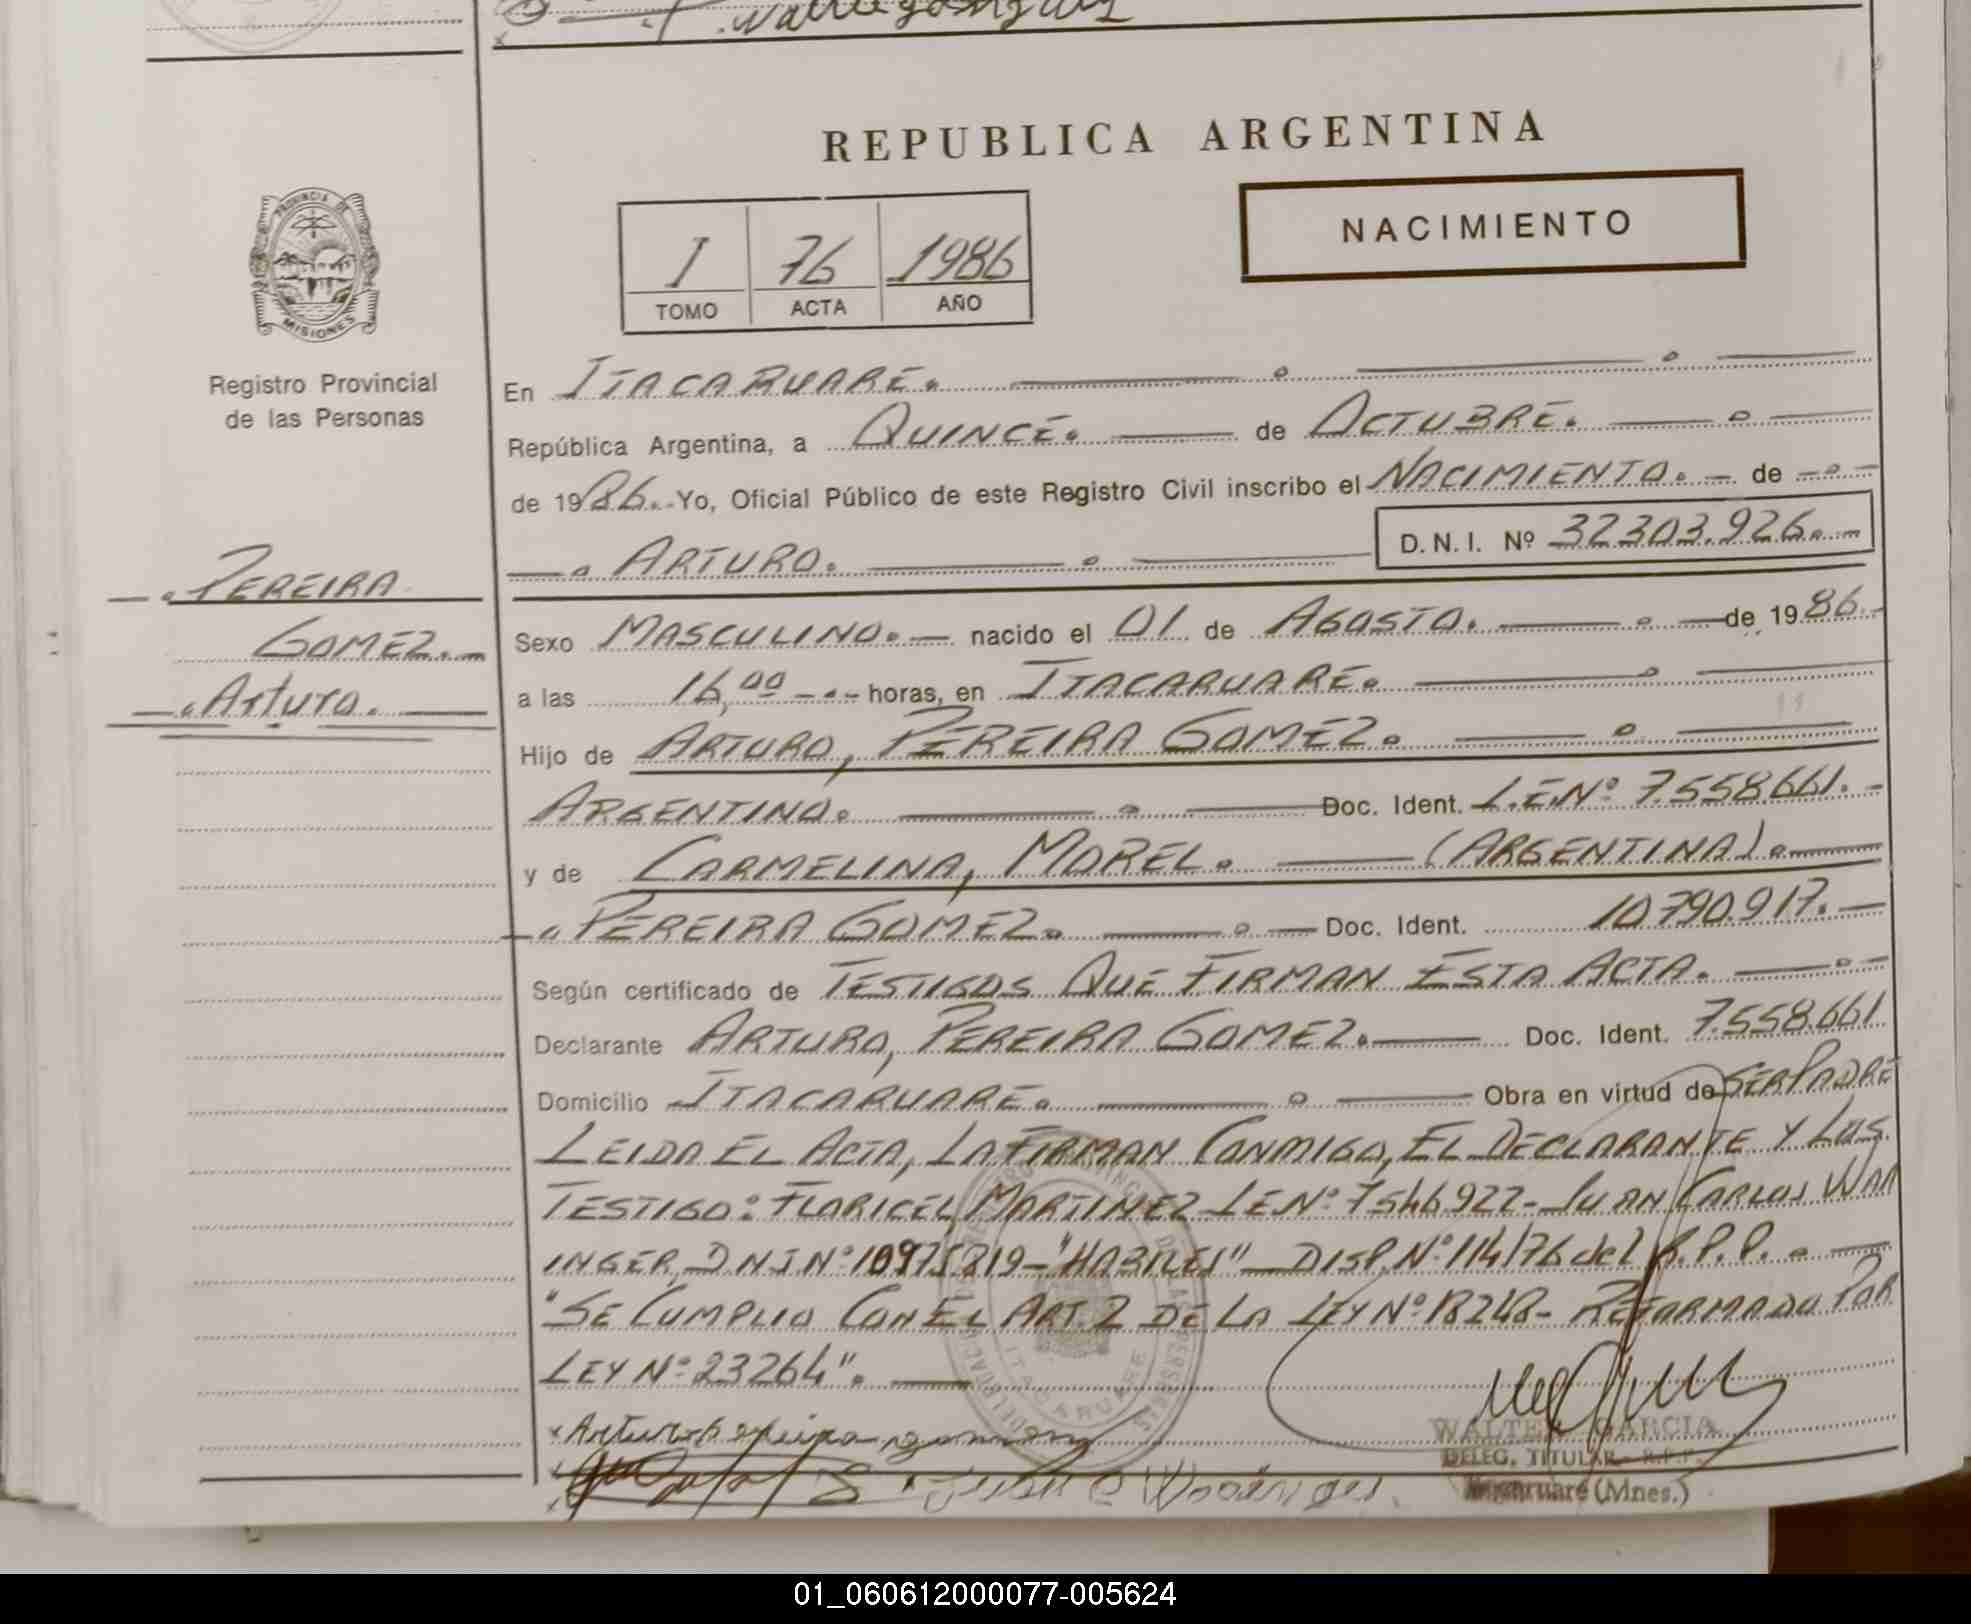 REPUBLICA ARGENTINA
NACIMIENTO
I 76 1986
TOMO ACTA AÑO
PROVINCIA DE
MISIONES
Registro Provincial
de las Personas
PEREIRA
GOMEZ.
Arturo.
En ITACARUARE.
República Argentina, a QUINCE. de OCTUBRE.
de 1986.- Yo, Oficial Público de este Registro Civil inscribo el NACIMIENTO. de
ARTURO. D.N.I. Nº 32303.926.
Sexo MASCULINO. nacido el 01 de AGOSTO. de 1986.-
a las 16,00 horas, en ITACARUARE.
Hijo de ARTURO, PEREIRA GOMEZ.
ARGENTINO. Doc. Ident. L.E.Nº 7.558.661.-
y de CARMELINA, MOREL. (ARGENTINA).
PEREIRA GOMEZ. Doc. Ident. 10.790.917.-
Según certificado de TESTIGOS QUE FIRMAN ESTA ACTA.
Declarante ARTURO, PEREIRA GOMEZ. Doc. Ident. 7.558.661
Domicilio ITACARUARE. Obra en virtud de SER PADRE
LEIDA EL ACTA, LA FIRMAN CONMIGO, EL DECLARANTE Y LOS
TESTIGO: FLORICEL MARTINEZ LE Nº 7546922- JUAN CARLOS WAR
INGER, DNI Nº 10975819- "HABILES" - DISP. Nº 114/76 del R.P.P.
"SE CUMPLIO CON EL ART. 2 DE LA LEY Nº 18248- REFORMADO POR
LEY Nº 23264".
ITACARUARE
Arturo Pereira gomez
WALTER GARCIA
DELEG. TITULAR - R.P.P.
Itacaruaré (Mnes.)
01_060612000077-005624